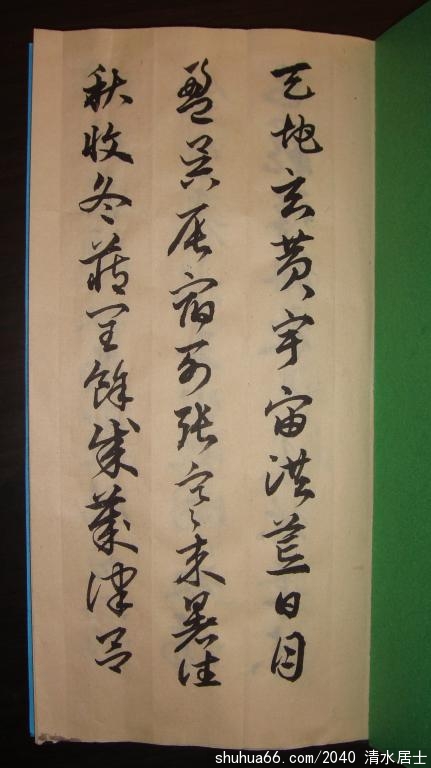 天地玄黄宇宙洪荒日月
盈昃辰宿列張寒来暑往
秋收冬藏閏餘成歲律呂
shuhua66.com/2040 清水居士